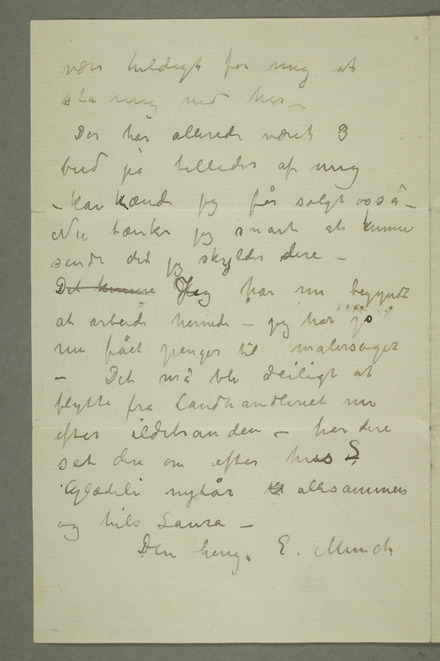 være heldigt for mig at
slå mig ned her –
Der har allerede været 3
bud på billeder af mig
– kan hænde jeg får solgt også –
Nu tænker jeg snart at kunne
sende det jeg skylder dere –
Det kunne Jeg har nu begyndt
at arbeide herinde – jeg har jo
nu fået penger til malersager
– Det må bli deiligt at
flytte fra Landhandleriet nu
efter ildebranden – har dere
set dere om efter hus
Glædeli nytår allesammen
og hils Laura –
Din heng. E. Munch